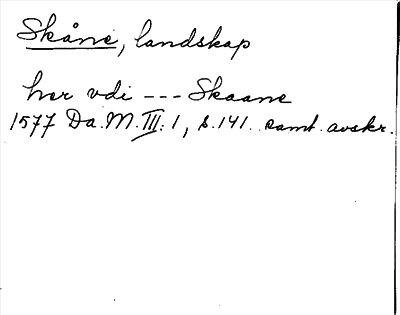 Skåne, landskap
her vdi --- Skaane
1577 Da. M. III: 1, s. 141. samt. avskr.